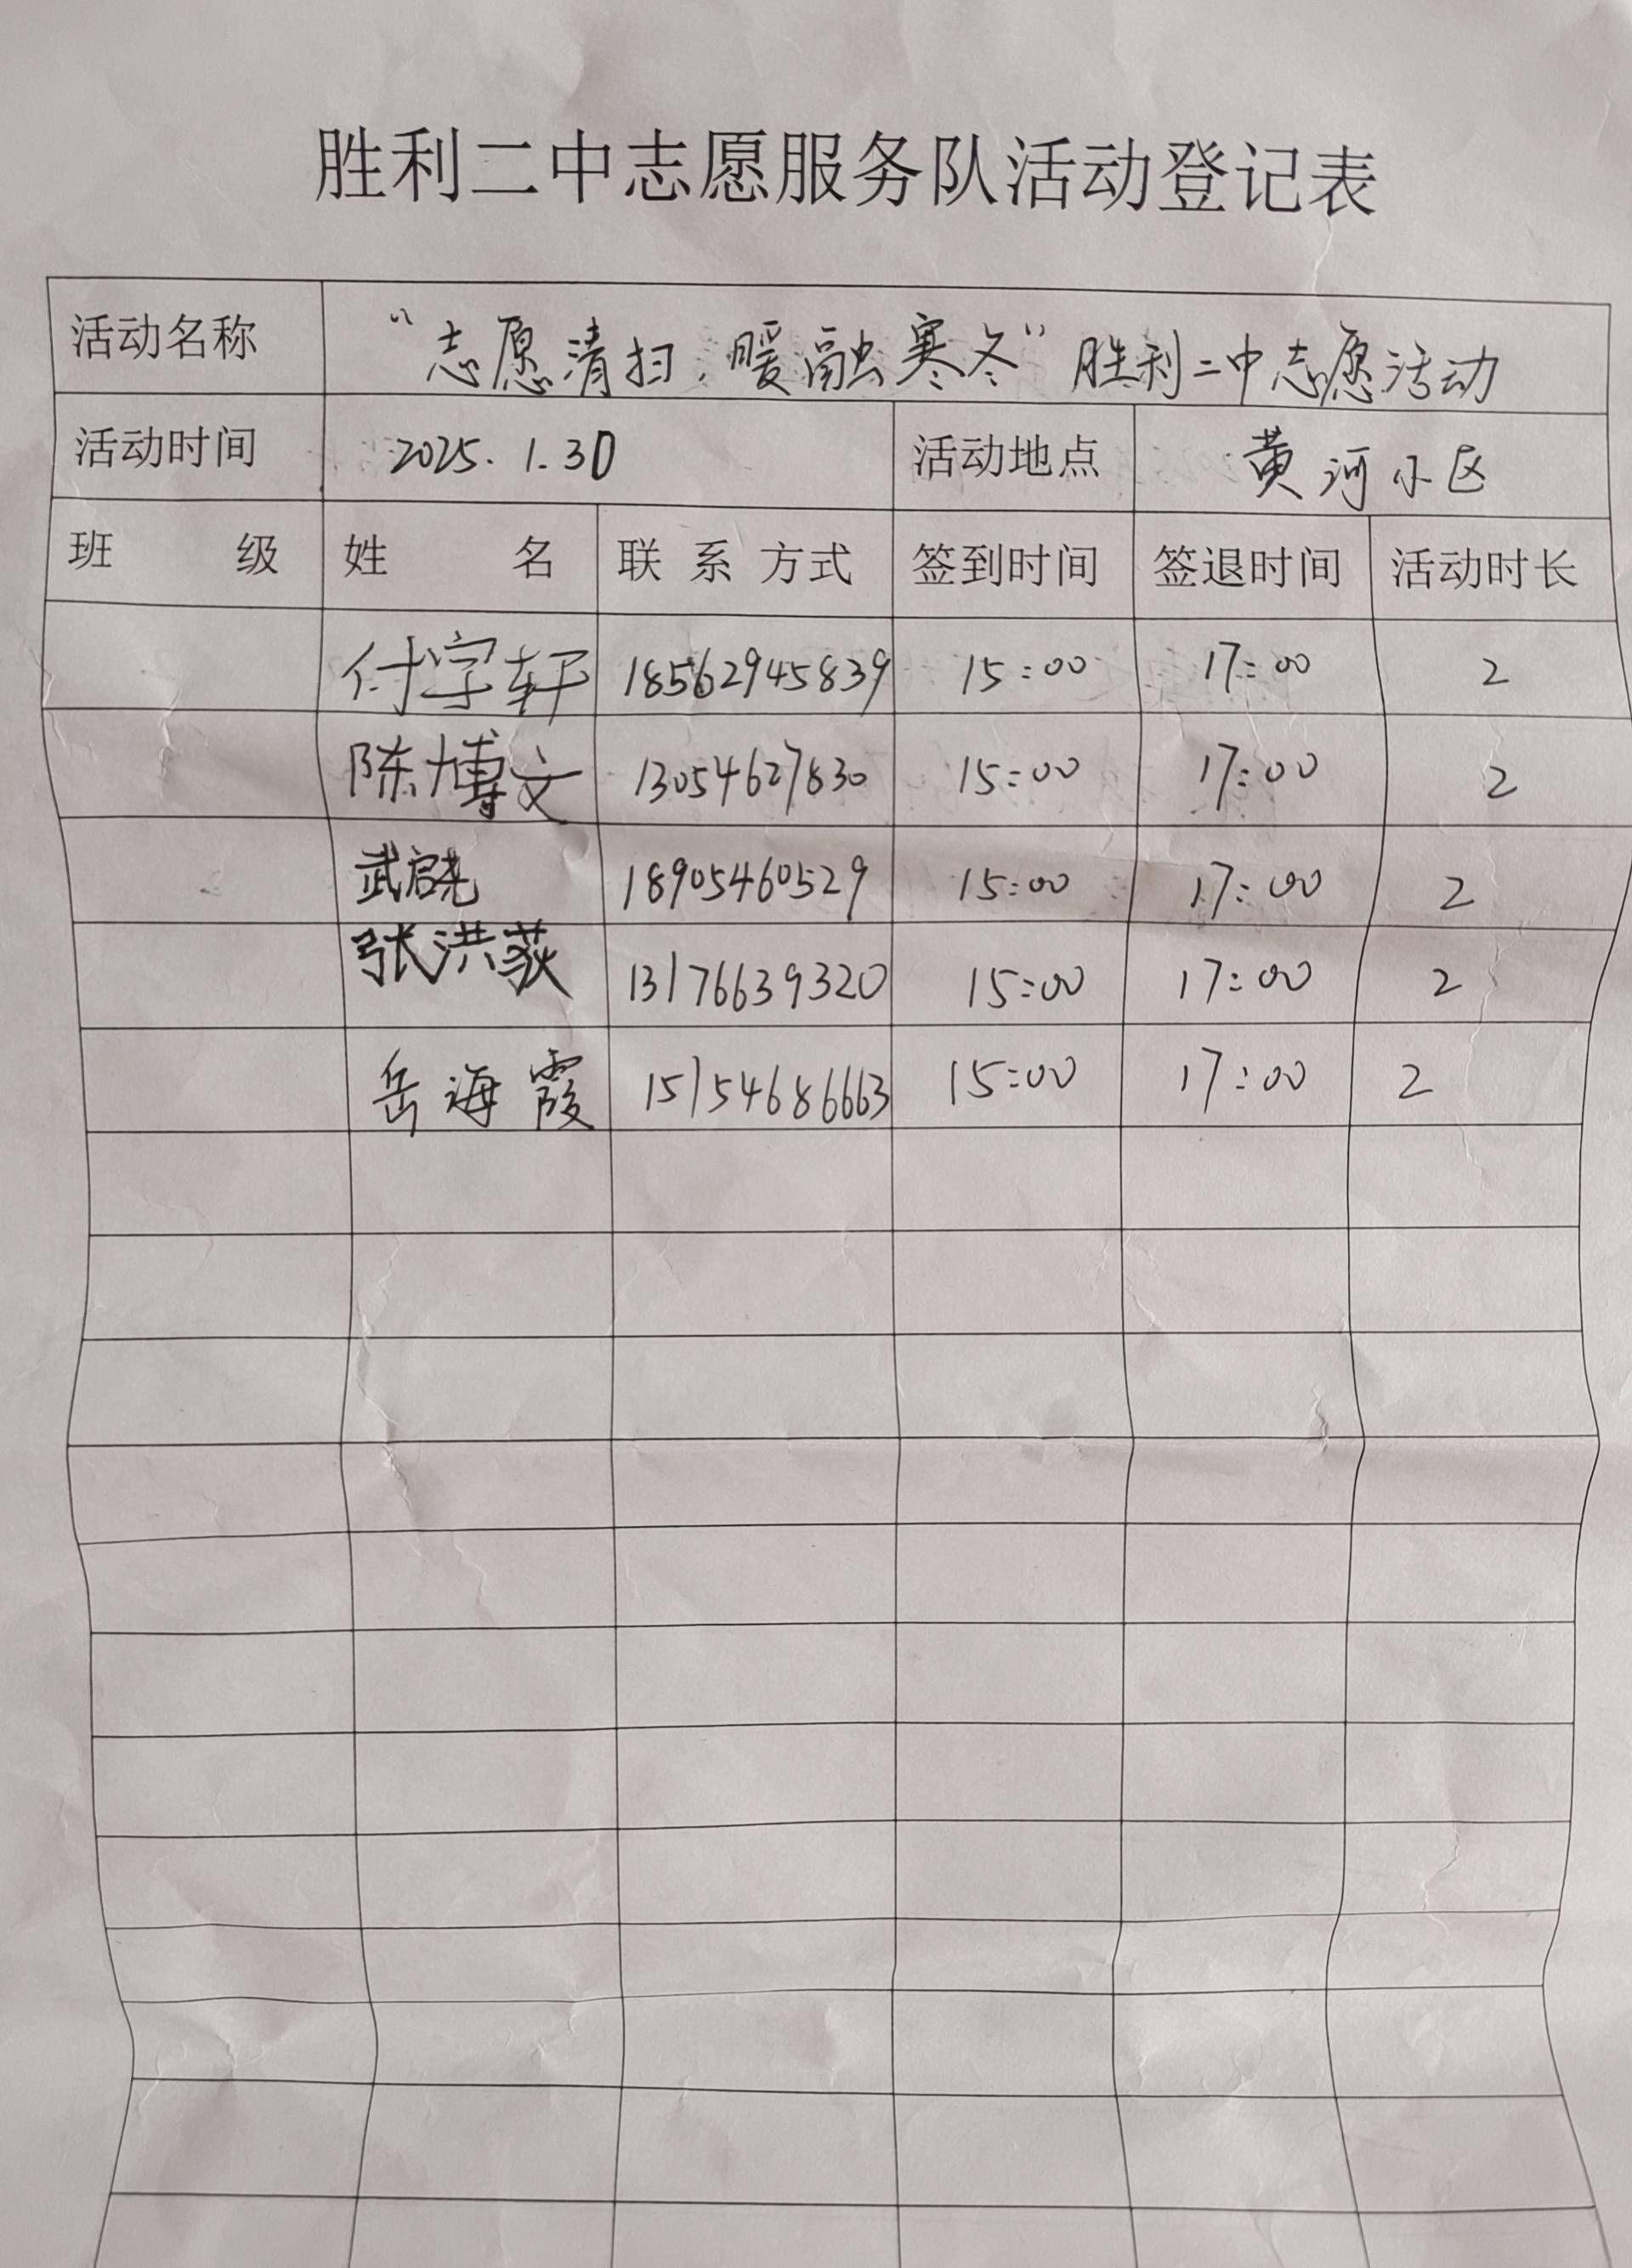 胜利二中志愿服务队活动登记表
活动名称 “志愿清扫，暖融寒冬”胜利二中志愿活动
活动时间 2025.1.30 活动地点 黄河小区
班 级 姓 名 联系方式 签到时间 签退时间 活动时长
付宇轩 18562945839 15:00 17:00 2
陈博文 13054627830 15:00 17:00 2
武启尧 18905460529 15:00 17:00 2
张洪荻 13176639320 15:00 17:00 2
岳海霞 15154686663 15:00 17:00 2